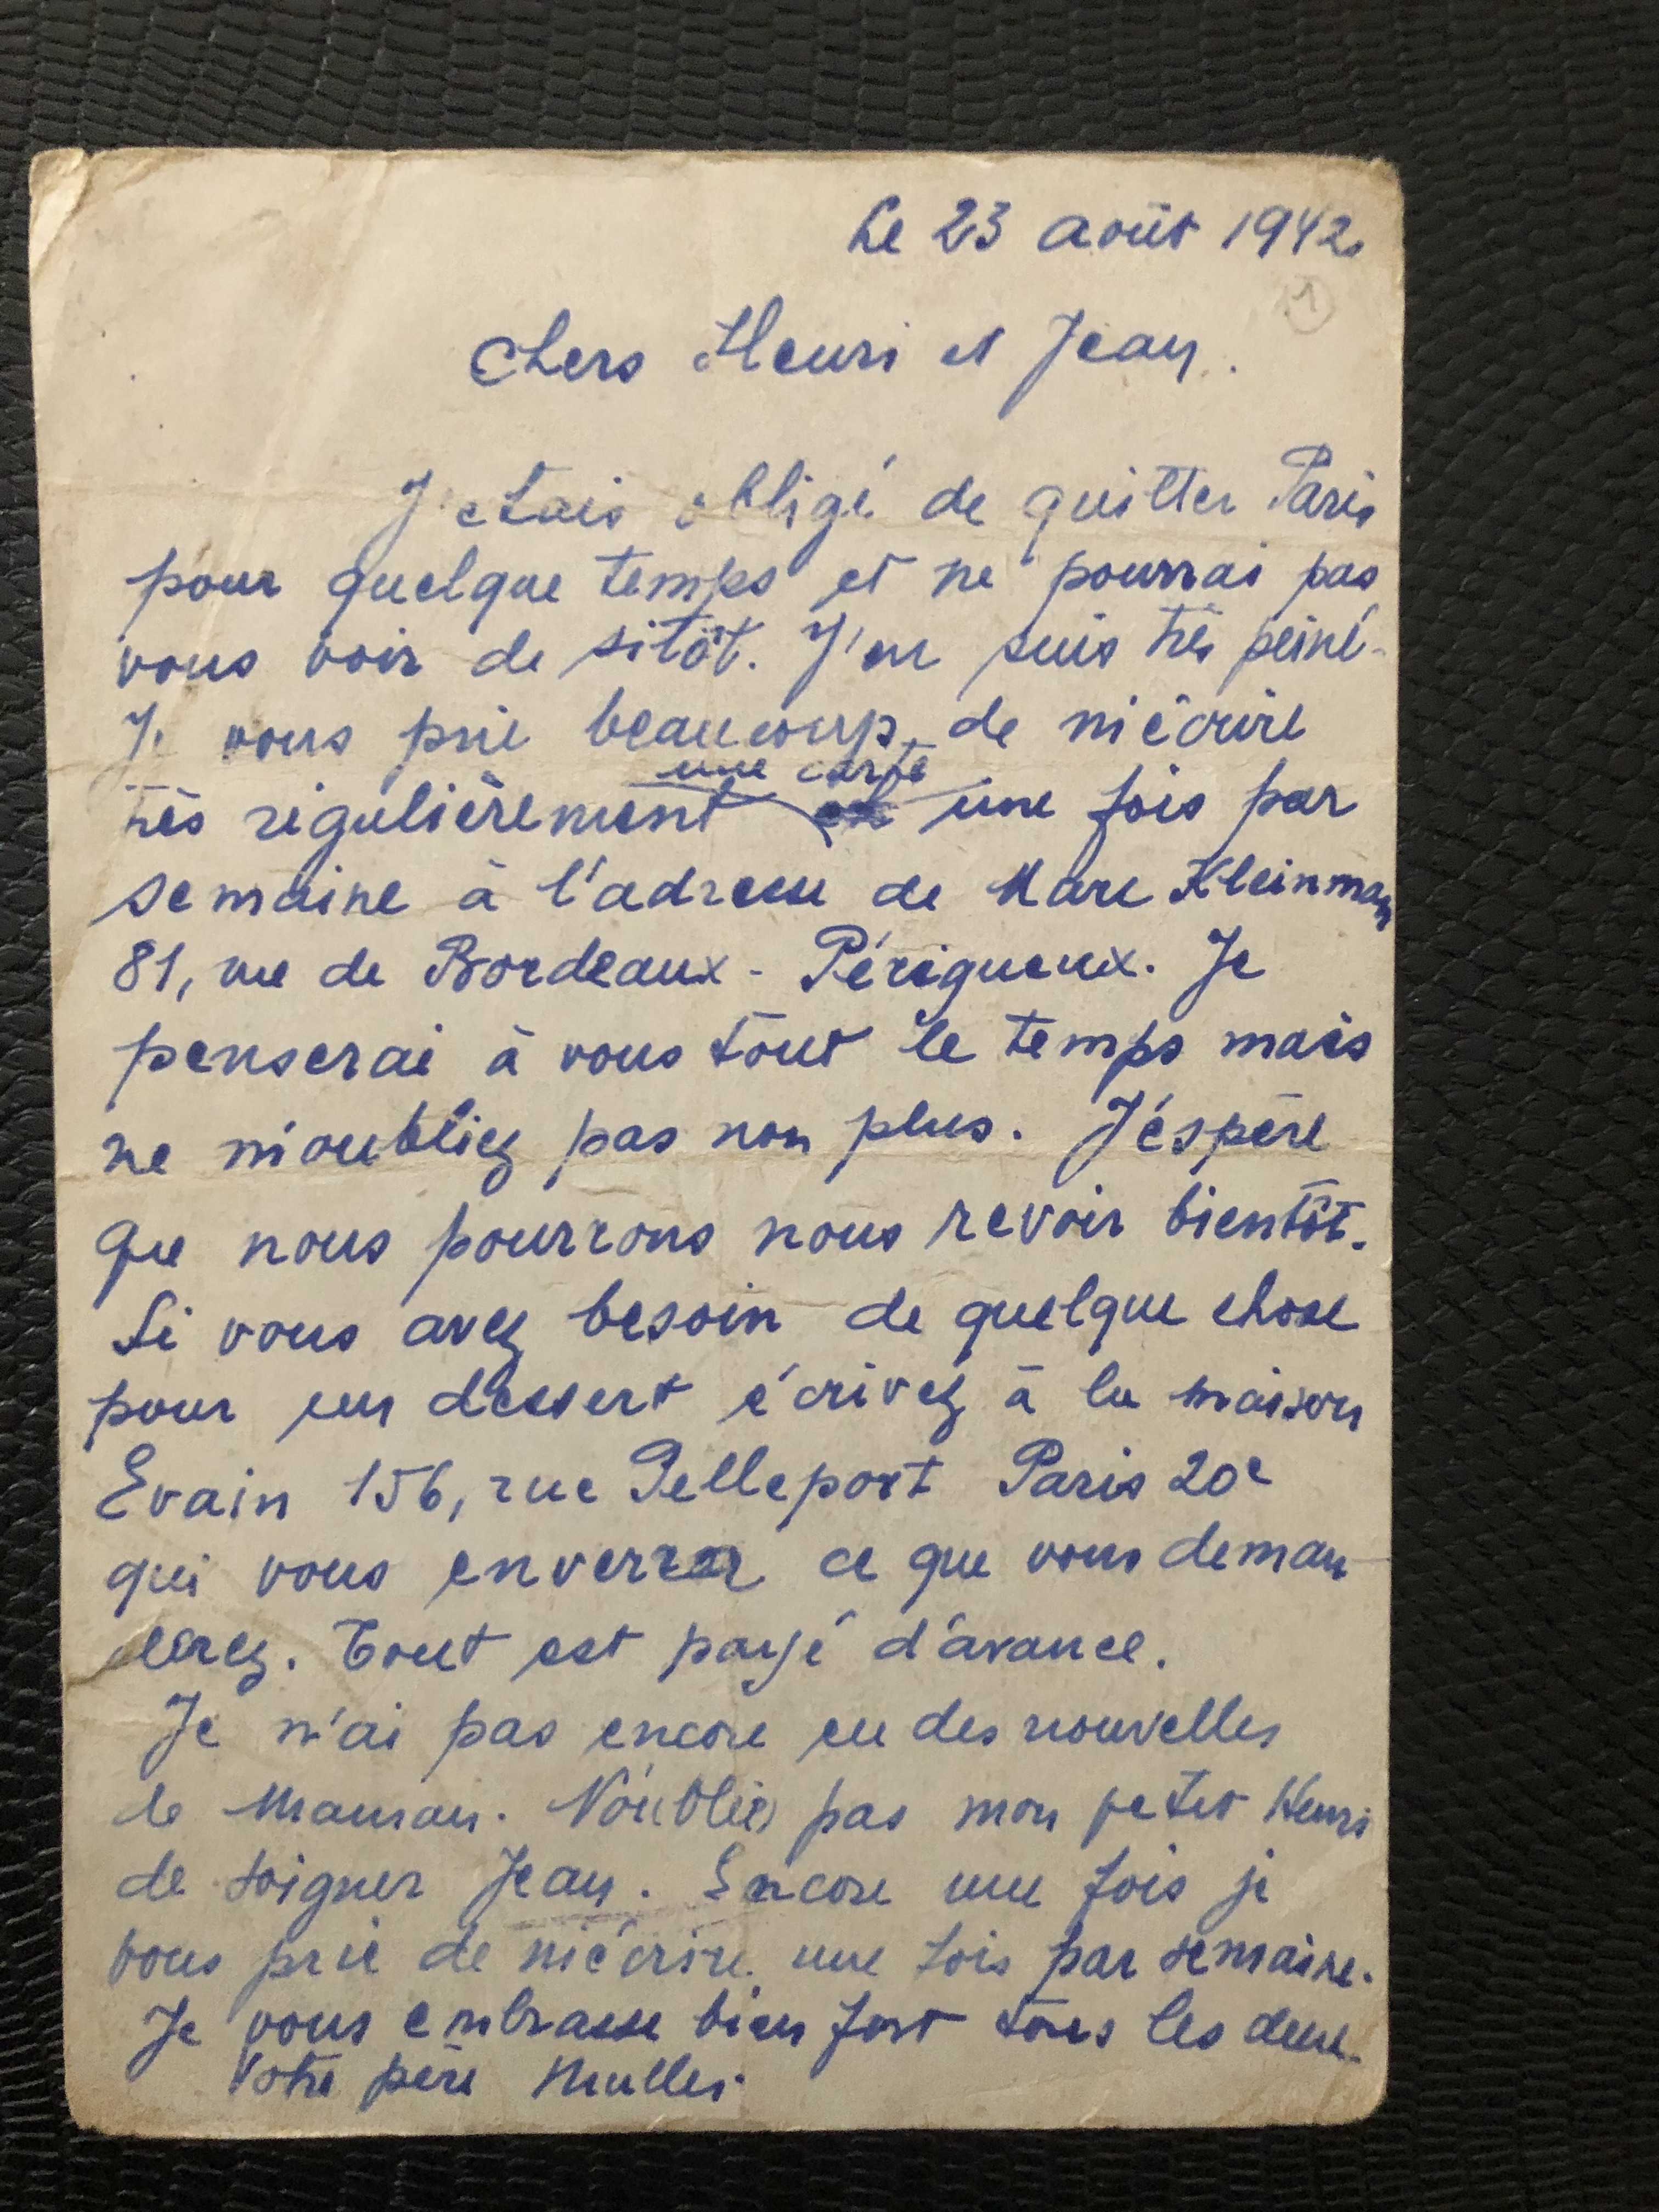 Le 23 août 1942
1
Chers Henri et Jean.
J'etais obligé de quitter Paris
pour quelque temps et ne pourrai pas
vous voir de sitôt. J'en suis très peiné.
Je vous prie beaucoup de m'écrire
une carte
très régulièrement une fois par
semaine à l'adresse de Marc Kleinman
81, rue de Bordeaux - Périgueux. Je
penserai à vous tout le temps mais
ne m'oubliez pas non plus. J'éspère
que nous pourrons nous revoir bientôt.
Si vous avez besoin de quelque chose
pour un dessert écrivez à la maison
Evain 156, rue Pelleport Paris 20e
qui vous enverra ce que vous deman-
derez. Tout est payé d'avance.
Je n'ai pas encore eu des nouvelles
de Maman. N'oublie pas mon petit Henri
de soigner Jean. Encore une fois je
vous prie de m'écrire une fois par semaine.
Je vous embrasse bien fort tous les deux.
Votre père Muller